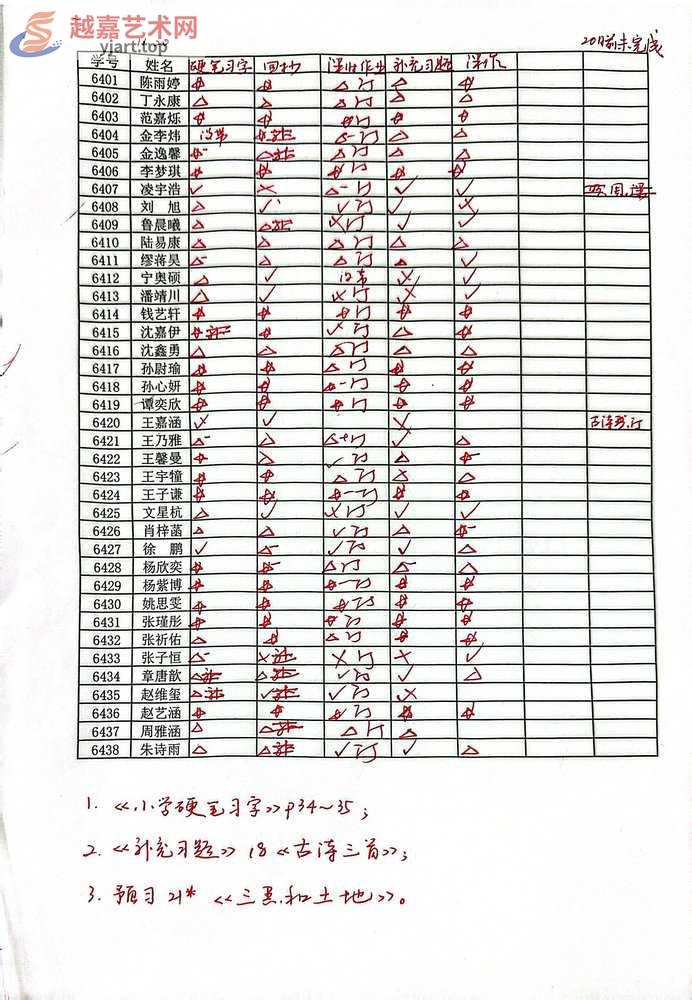 越嘉艺术网
yjart.top
20日前未完成
学号 姓名 硬笔习字 回抄 课时作业 补充习题 习作
6401 陈雨婷
6402 丁永康
6403 范嘉烁
6404 金李炜 没带
6405 金逸馨
6406 李梦琪
6407 凌宇浩
6408 刘 旭
6409 鲁晨曦
6410 陆易康
6411 缪蒋昊
6412 宁奥硕 没带
6413 潘靖川
6414 钱艺轩
6415 沈嘉伊
6416 沈鑫勇
6417 孙尉瑜
6418 孙心妍
6419 谭奕欣
6420 王嘉涵
6421 王乃雅
6422 王馨曼
6423 王宇犝
6424 王子谦
6425 文星杭
6426 肖梓菡
6427 徐 鹏
6428 杨欣奕
6429 杨紫博
6430 姚思雯
6431 张瑾彤
6432 张祈佑
6433 张子恒
6434 章唐歆
6435 赵维玺
6436 赵艺涵
6437 周雅涵
6438 朱诗雨
1. 《小学硬笔习字》P34~35；
2. 《补充习题》18《古诗三首》；
3. 预习 21*《三黑和土地》。